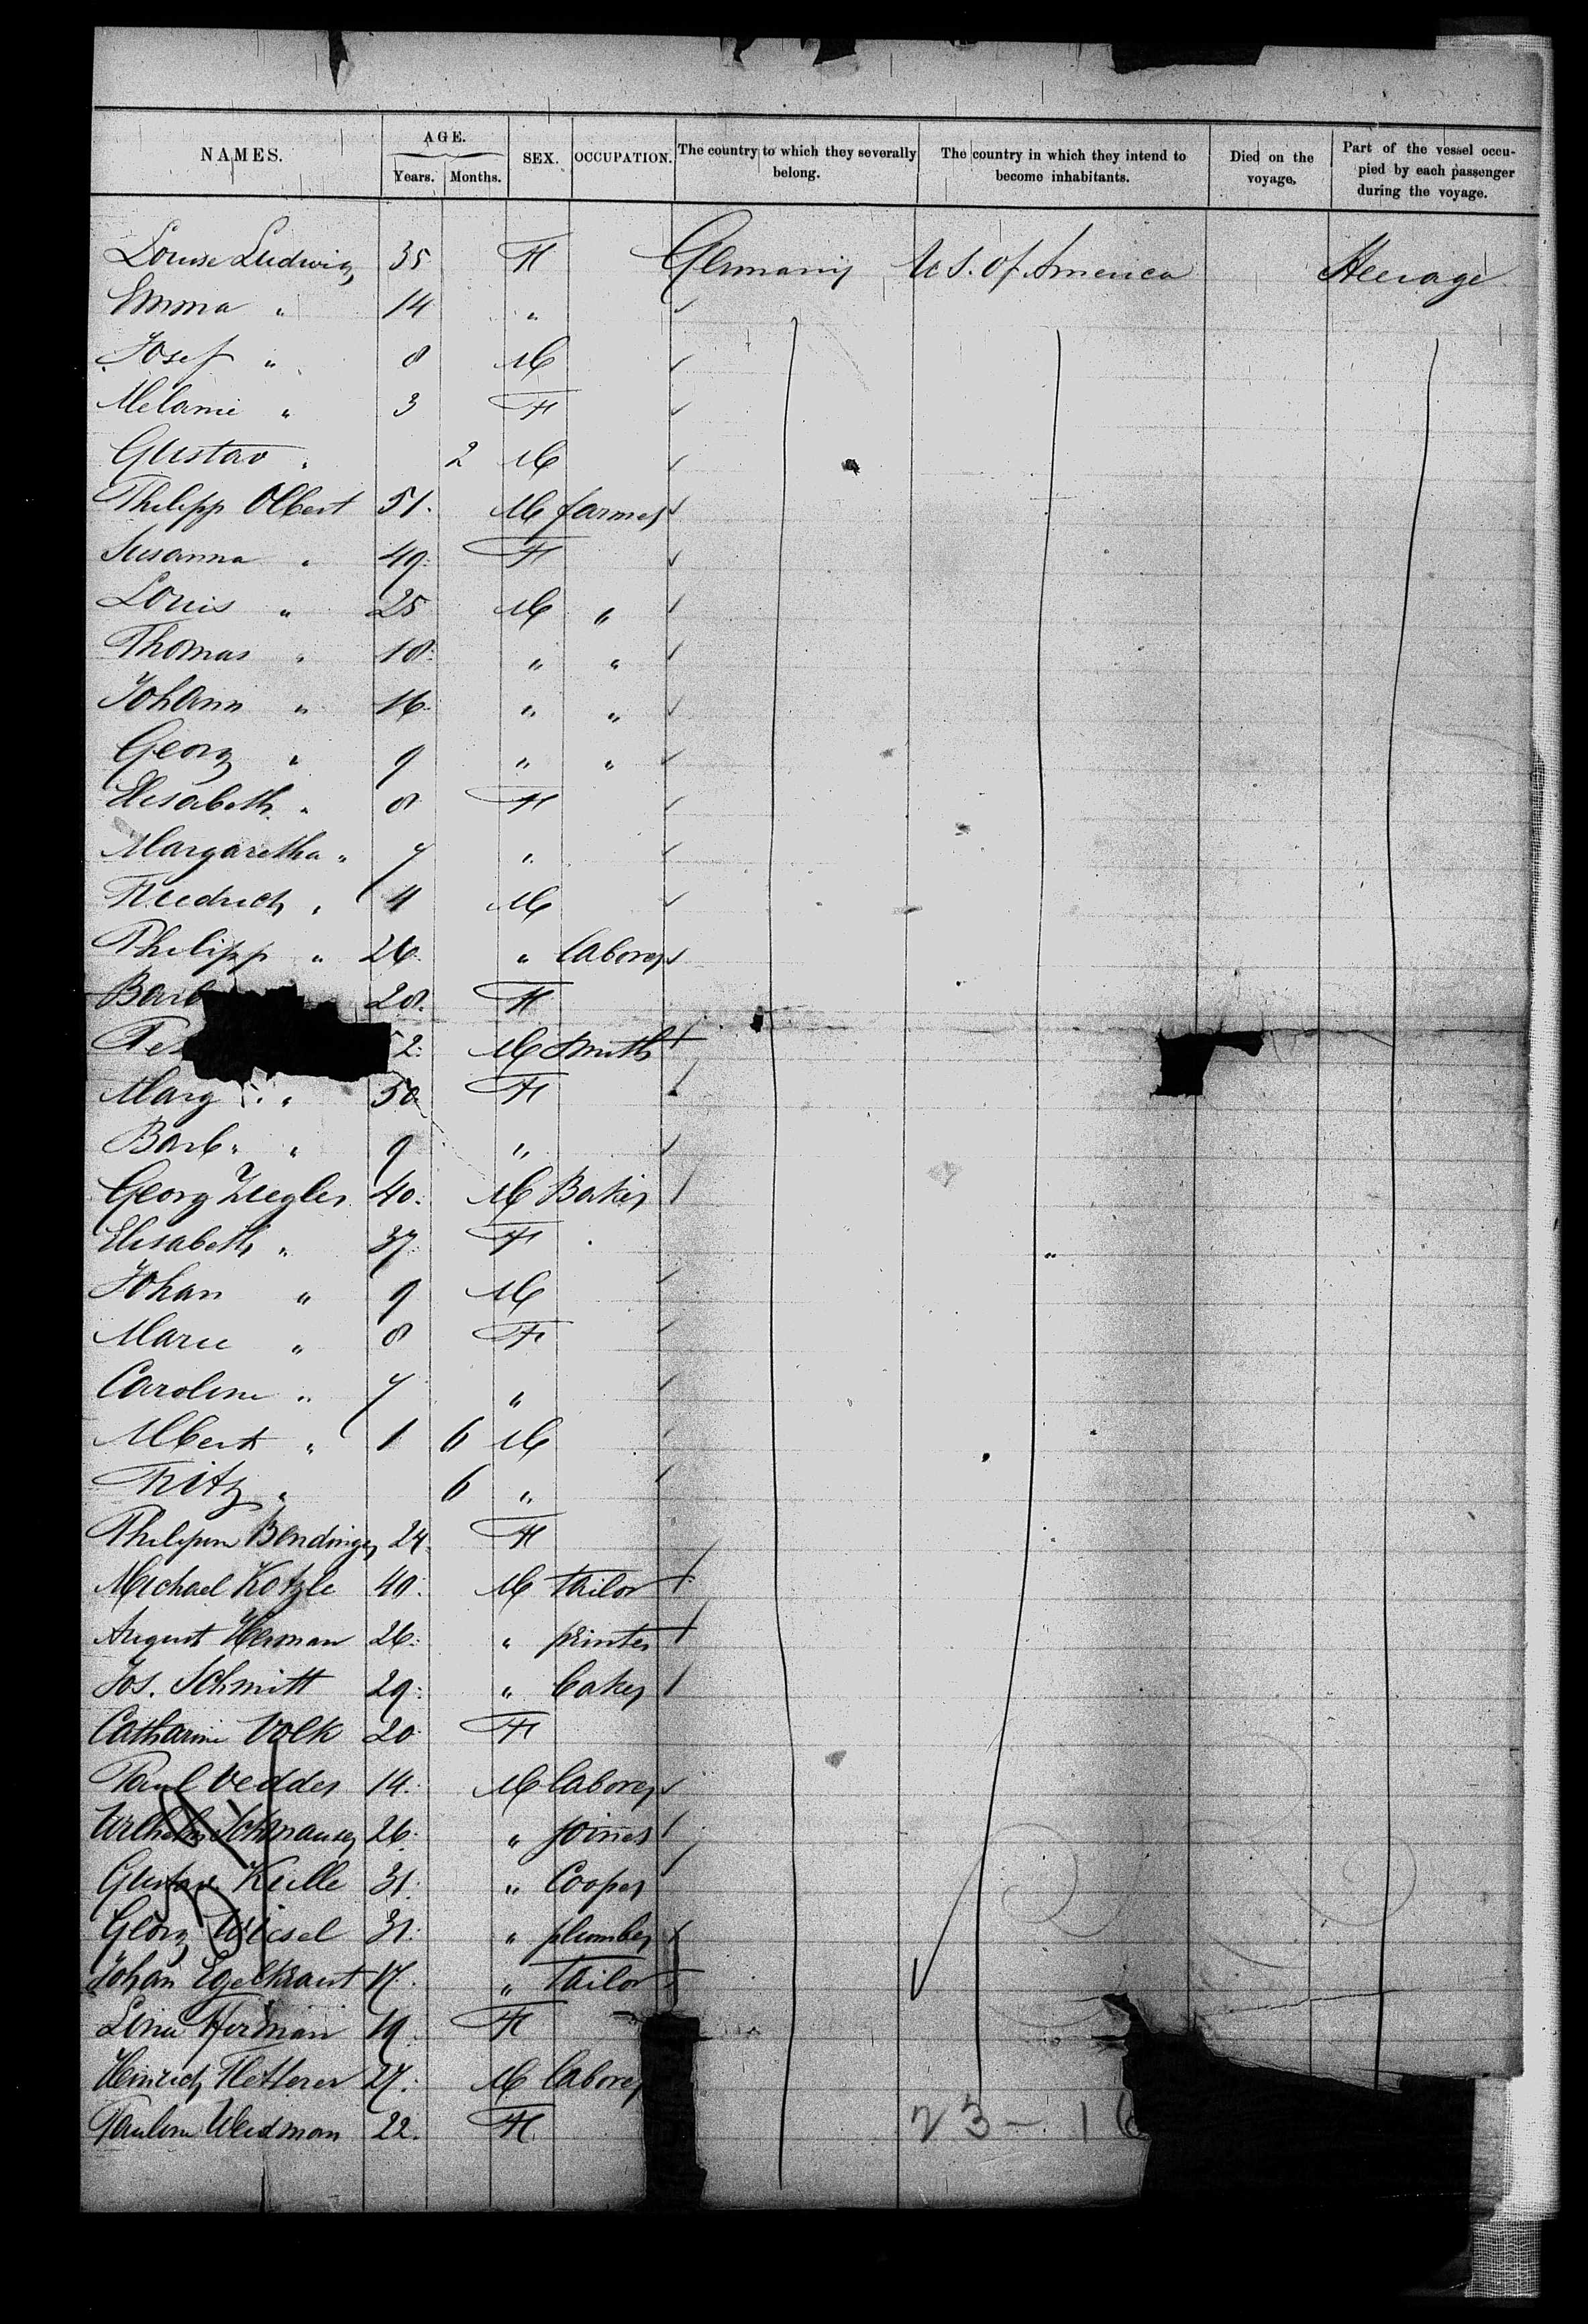 NAMES. AGE. Years. Months. SEX. OCCUPATION. The country to which they severally belong. The country in which they intend to become inhabitants. Died on the voyage. Part of the vessel occupied by each passenger during the voyage.
Louise Ludwig 35 F Germany U S. of America Steerage
Emma " 14 "
Josef " 8 M
Melanie " 3 F
Gustav " 2 M
Philipp Olbert 51 M farmer
Susanna " 49 F
Louis " 25 M "
Thomas " 18 " "
Johann " 16 " "
Georg " 9 " "
Elisabeth " 8 F
Margaretha " 7 "
Friedrich " 4 M
Philipp " 26 " laborer
Barb 28 F
Pet 52 M Smith
Marg " 50 F
Barb. " 9 "
Georg Ziegler 40 M Baker
Elisabeth " 37 F
Johan " 9 M
Marie " 8 F
Caroline " 7 "
Albert " 1 6 M
Fritz " 6 "
Philipin Bendinger 24 F
Michael Kotzle 40 M tailor
August Herman 26 " printer
Jos. Schmitt 29 " baker
Catharine Volk 20 F
Paul Vedder 14 M laborer
Wilhelm 26 " joiner
Gustav Keille 31 " Cooper
Georg Wiesel 31 " plumber
Johan Egelkraut 17 " Tailor
Lina Herman 19 F
Heinrich Fletterer 27 M laborer
Paulin Weidman 22 F
23 - 16